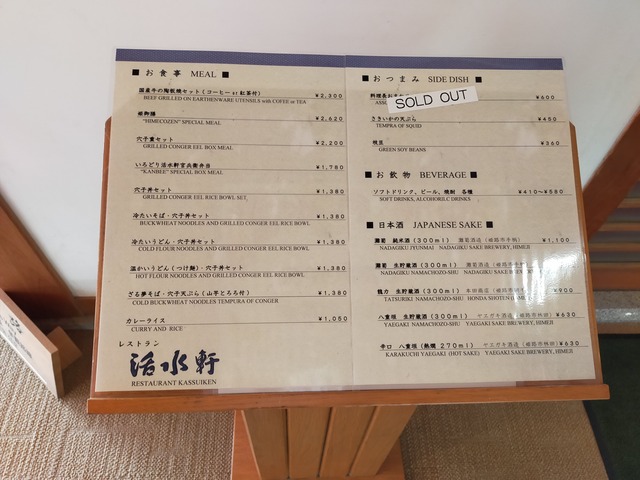 ■ お食事 MEAL ■
国産牛の陶板焼セット(コーヒーor紅茶付) ¥2,300
BEEF GRILLED ON EARTHENWARE UTENSILS with COFEE or TEA
姫御膳 ¥2,620
"HIMEGOZEN" SPECIAL MEAL
穴子重セット ¥2,200
GRILLED CONGER EEL BOX MEAL
いろどり活水軒官兵衛弁当 ¥1,780
"KANBEE" SPECIAL BOX MEAL
穴子丼セット ¥1,380
GRILLED CONGER EEL RICE BOWL SET
冷たいそば・穴子丼セット ¥1,380
BUCKWHEAT NOODLES AND GRILLED CONGER EEL RICE BOWL
冷たいうどん・穴子丼セット ¥1,380
COLD FLOUR NOODLES AND GRILLED CONGER EEL RICE BOWL
温かいうどん(つけ麺)・穴子丼セット ¥1,380
HOT FLOUR NOODLES AND GRILLED CONGER EEL RICE BOWL
ざる夢そば・穴子天ぷら(山芋とろろ付) ¥1,380
COLD BUCKWHEAT NOODLES TEMPURA OF CONGER
カレーライス ¥1,050
CURRY AND RICE
レストラン
活水軒
RESTAURANT KASSUIKEN
■ おつまみ SIDE DISH ■
料理長お ¥600
SOLD OUT
さきいかの天ぷら ¥450
TEMPRA OF SQUID
枝豆 ¥360
GREEN SOY BEANS
■ お飲物 BEVERAGE ■
ソフトドリンク、ビール、焼酎 各種 ¥410~¥580
SOFT DRINKS, ALCOHORILC DRINKS
■ 日本酒 JAPANESE SAKE ■
灘菊 純米酒(300ml) 灘菊酒造(姫路市手柄) ¥1,100
NADAGIKU JYUNMAI NADAGIKU SAKE BREWERY, HIMEJI
灘菊 生貯蔵酒(300ml) 灘菊酒造(姫路市手柄)
NADAGIKU NAMACHOZO-SHU NADAGIKU SAKE BREWERY,
龍力 生貯蔵酒(300ml) 本田商店(姫路市 ¥900
TATSURIKI NAMACHOZO-SHU HONDA SHOTEN
八重垣 生貯蔵酒(300ml) ヤエガキ酒造(姫路市林田) ¥630
YAEGAKI NAMACHOZO-SHU YAEGAKI SAKE BREWERY, HIMEJI
辛口 八重垣(熱燗 270ml) ヤエガキ酒造(姫路市林田) ¥630
KARAKUCHI YAEGAKI (HOT SAKE) YAEGAKI SAKE BREWERY, HIMEJI